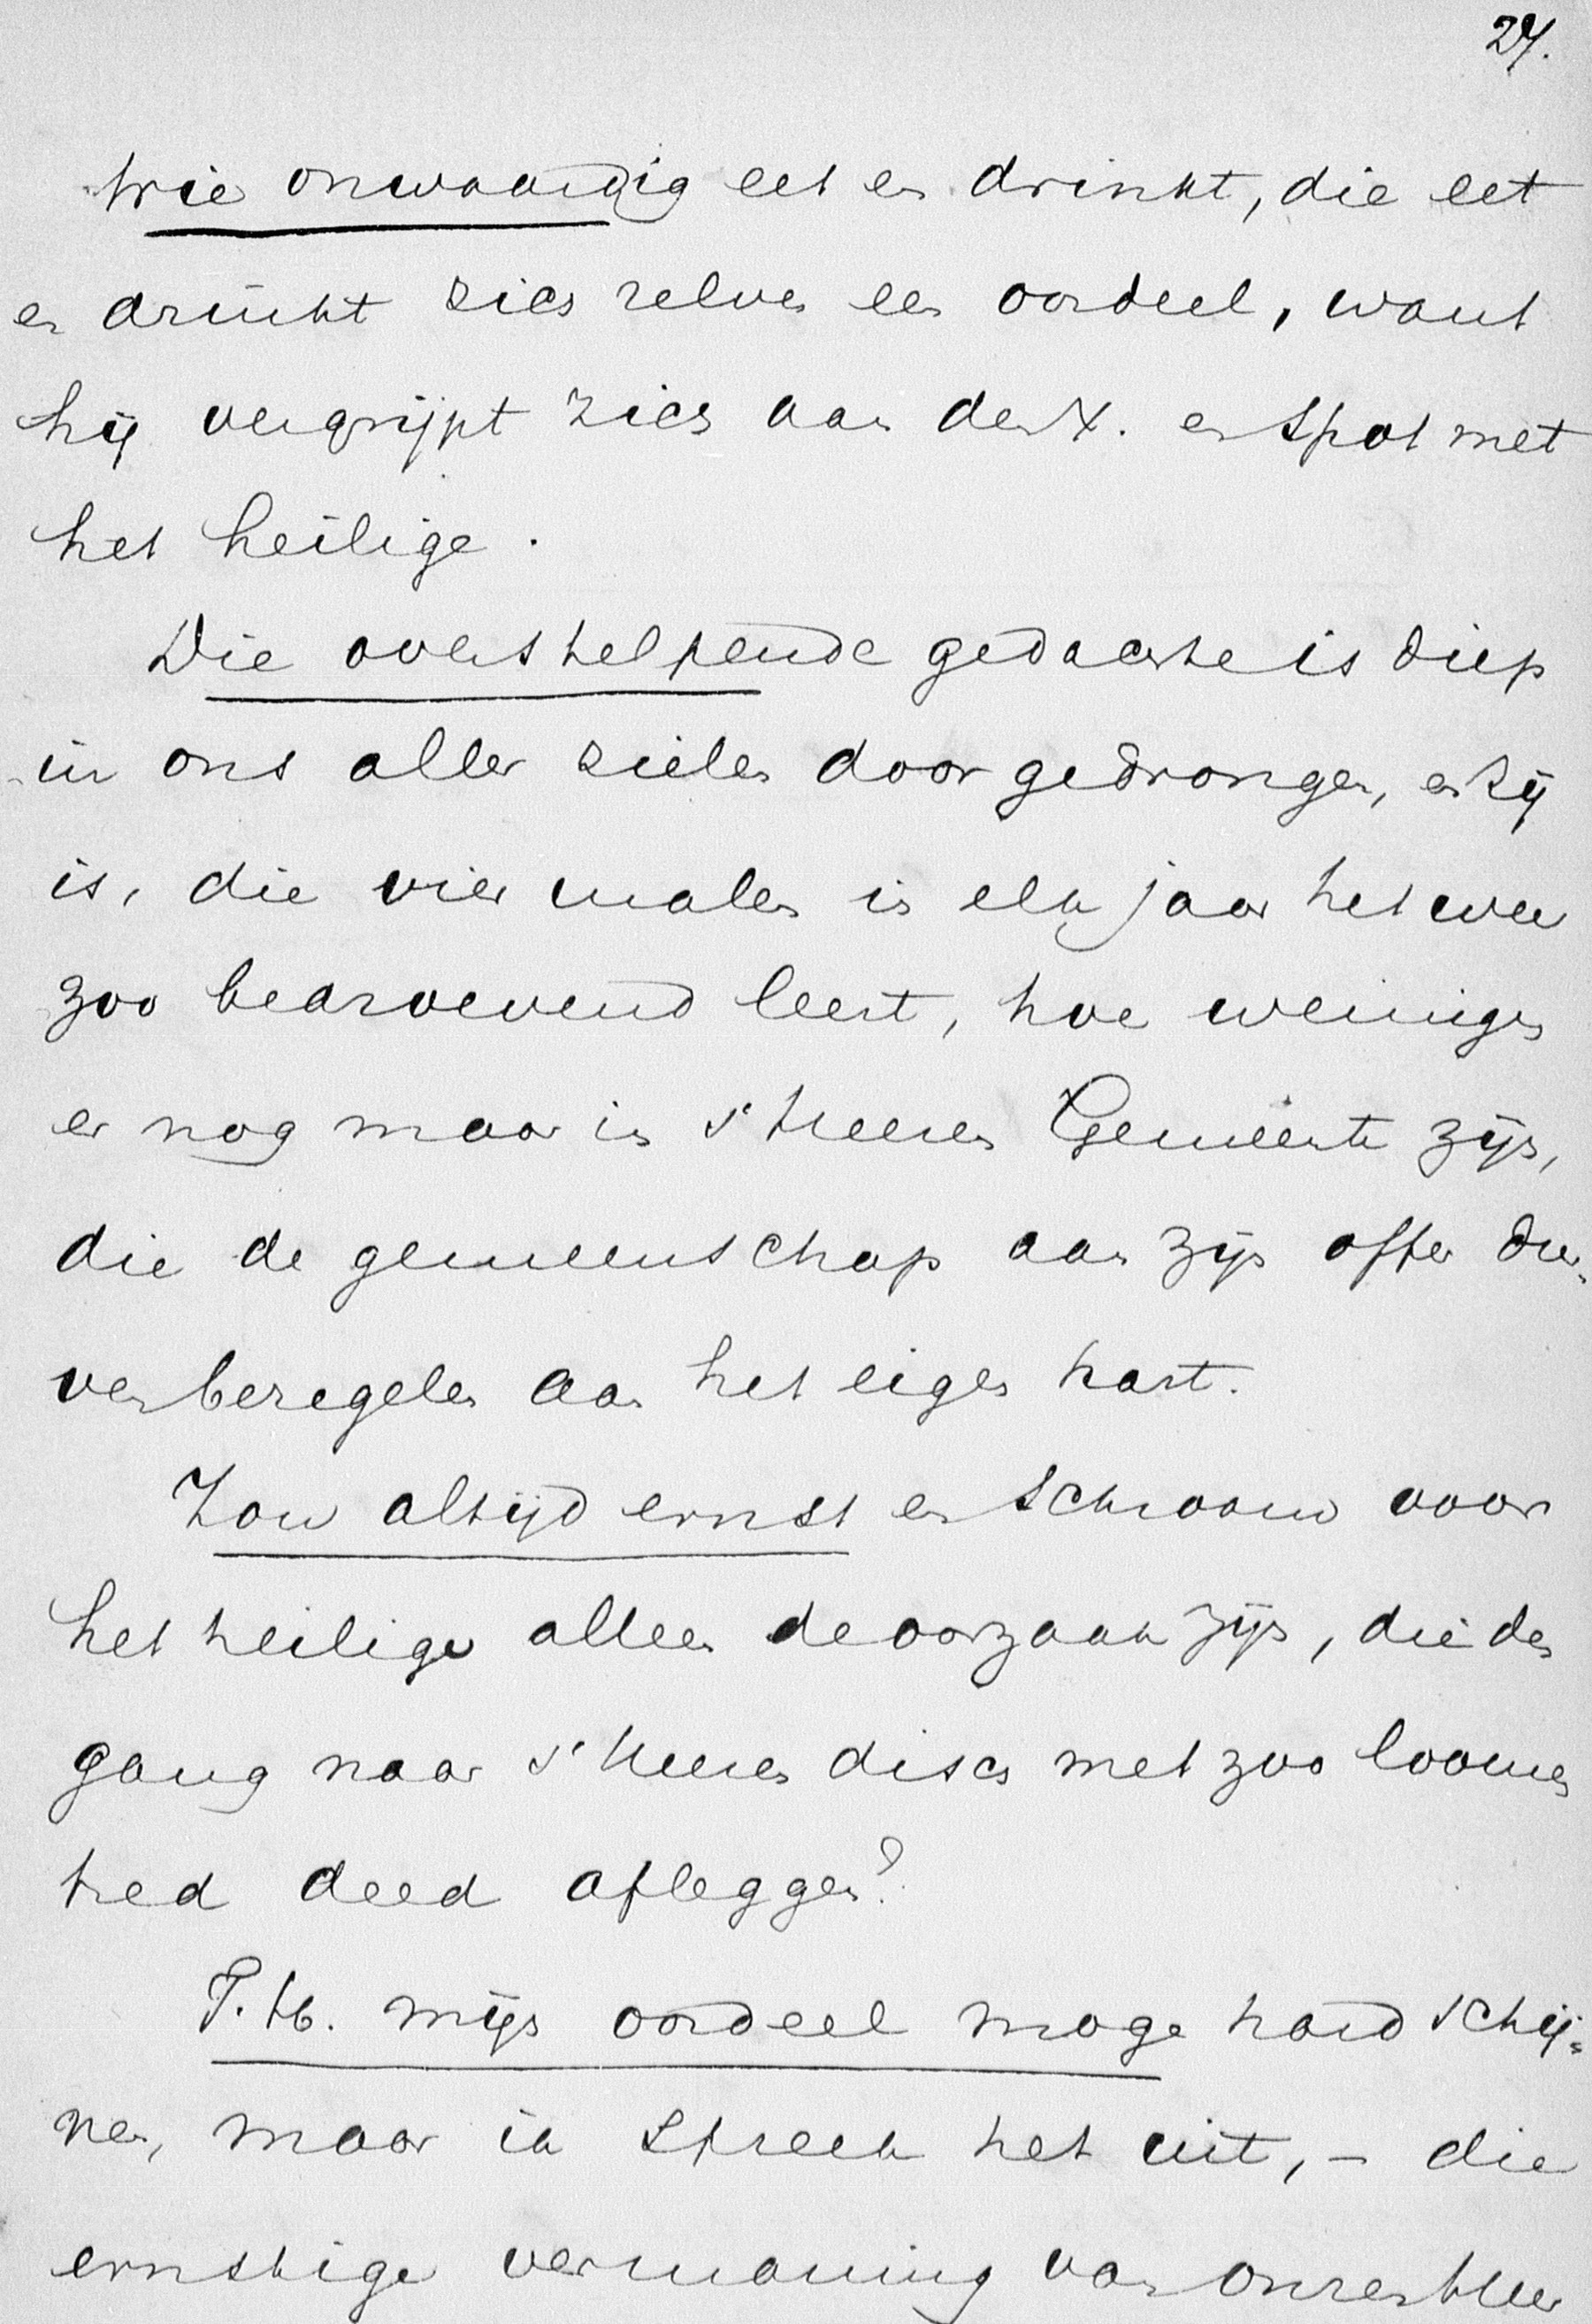 27.
Wie onwaardig eet en drinkt, die eet
en drinkt zich zelven een oordeel, want
hij vergrijpt zich aan den X. en spot met
het heilige.
Die overstelpende gedachte is diep
in ons aller zielen door gedrongen, en zij
is, die vier malen in elk jaar het weer
zoo bedroevend leert, hoe weinigen
er nog maar in s'Heeren Gemeente zijn,
die de gemeenschap aan zijn offer dur-
ven bezegelen aan het eigen hart.
Zou altijd ernst en schroom voor
het heilige alleen de oorzaak zijn, die den
gang naar s'Heeren disch met zoo loomen
tred deed afleggen?
T. H. mijn oordeel moge hard schij-
nen, maar ik spreek het uit, - die
ernstige vermaning van onzen Heer